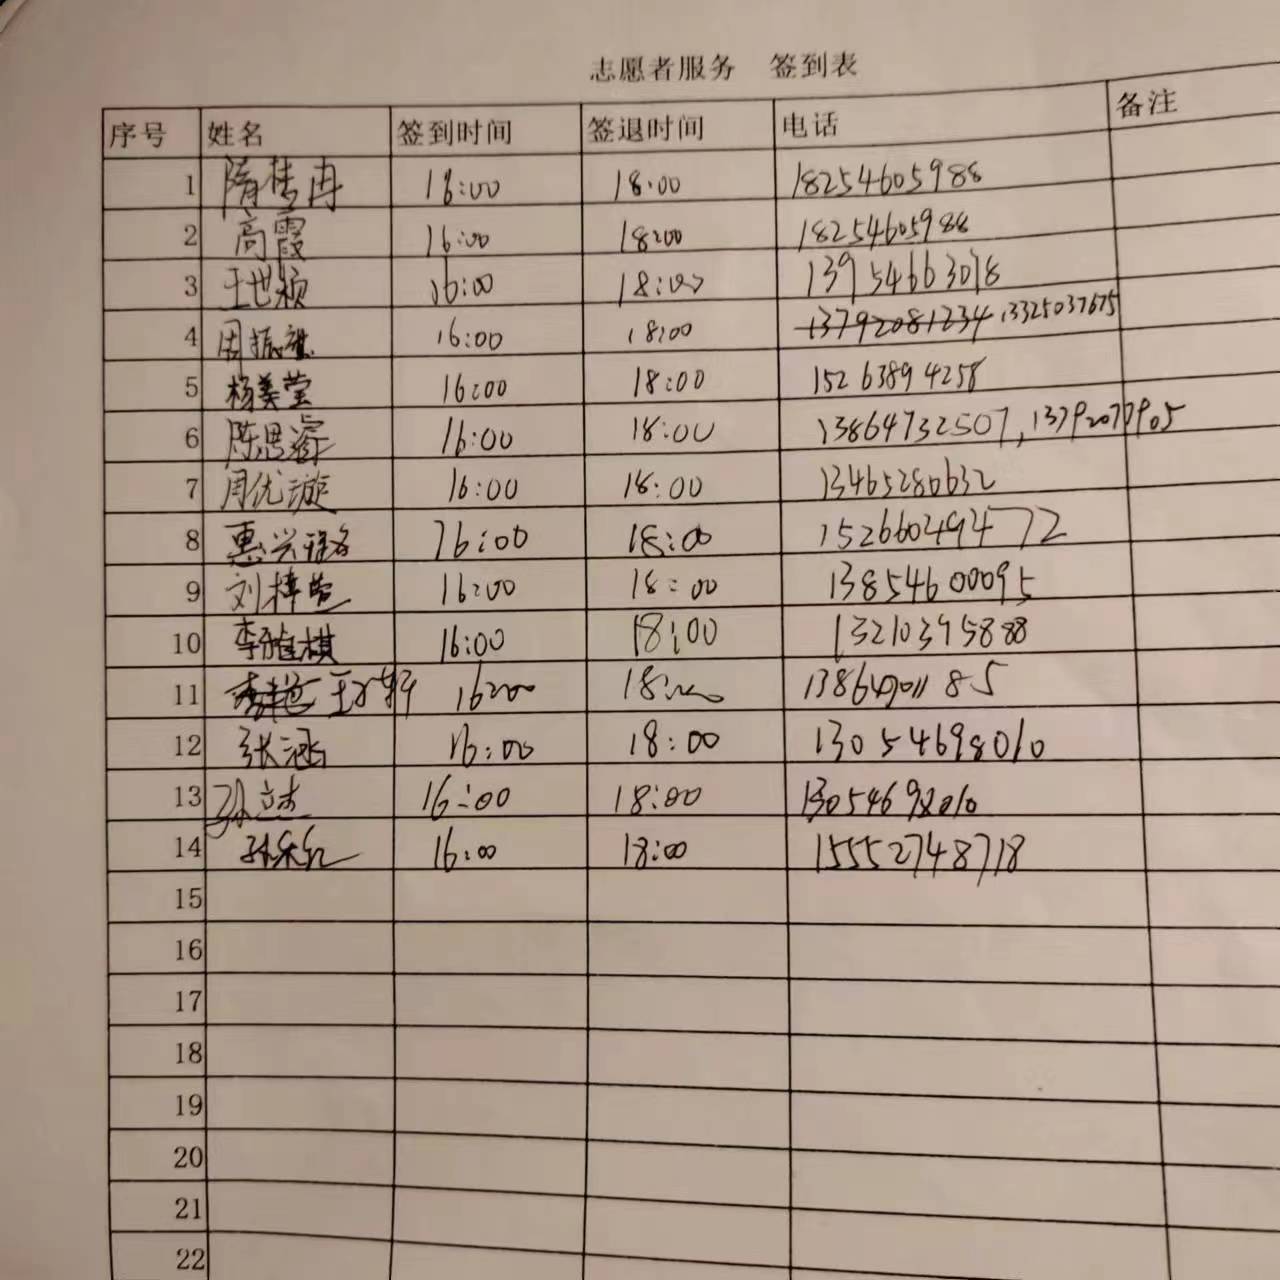 志愿者服务 签到表
序号 姓名 签到时间 签退时间 电话 备注
1 隋梦冉 16:00 18:00 18254605988
2 高霞 16:00 18:00 18254605988
3 王世颖 16:00 18:00 13954663018
4 周振 16:00 18:00 13792081234 13325037675
5 杨美莹 16:00 18:00 15263894258
6 陈思睿 16:00 18:00 13864732507,13792077905
7 周优漩 16:00 18:00 13465280632
8 惠兴 16:00 18:00 15266049472
9 刘梓 16:00 18:00 13854600095
10 李雅棋 16:00 18:00 13210395888
11 16:00 18:00
12 张涵 16:00 18:00 13054698010
13 孙立杰 16:00 18:00 13054698010
14 16:00 18:00 15552748718
15
16
17
18
19
20
21
22